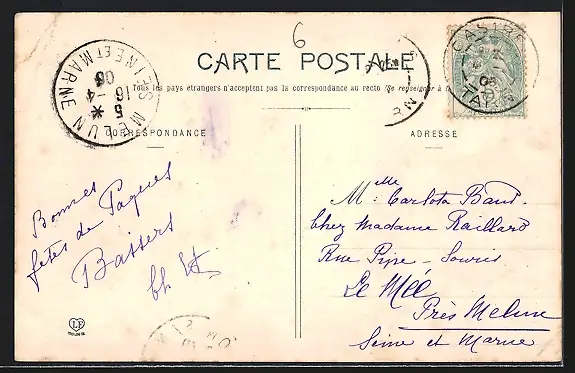 6
CARTE POSTALE
Tous les pays étrangers n'acceptent pas la correspondance au recto (Se renseigner à
CORRESPONDANCE
ADRESSE
Bonnes
fêtes de Paques
Baisers
MELUN
SEINE ET MARNE
5 *
16 - 4
06
CASTRES
TARN
Melle Carlota Baut.
Chez Madame Raillard
Rue Pipe - Souris
Le Mée
Près Melun
Seine et Marne
LF